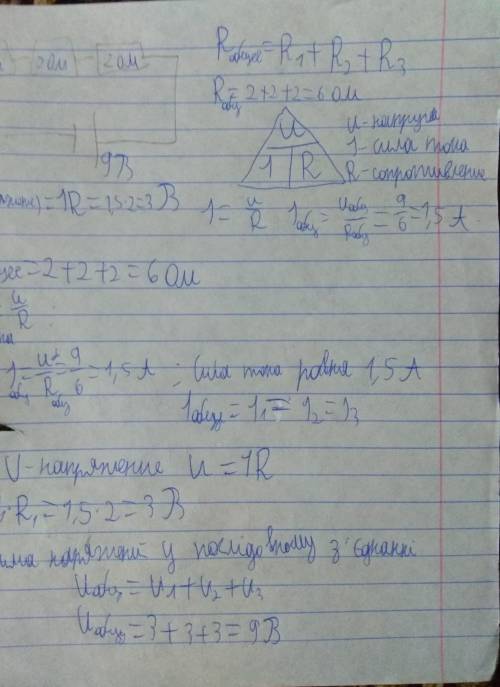 2 ОМ 2 ОМ
Rобщее = R1 + R2 + R3
Rобщ = 2+2+2=6 ОМ
U
1 R
U-напруга
1-сила тока
R-сопротивление
9В
=1R=1,5·2=3 В
1= u/R 1общ= Uобщ/Rобщ = 9/6 = 1,5 А
щее=2+2+2=6 ОМ
u/R
1общ = U/Rобщ = 9/6 = 1,5 А ; Сила тока ровня 1,5 А
1общ = 11 = 12 = 13
U-напряжение U = 1R
R1=1,5·2=3В
напряжений у послідовному з'єднанні
Uобщ = U1+U2+U3
Uобщ = 3+3+3=9В